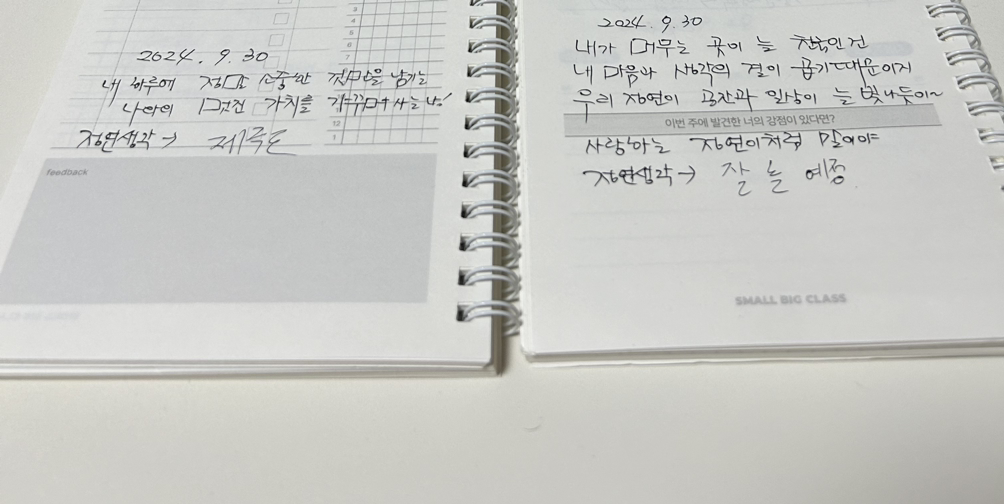 2024. 9. 30
내 하루에 소중한 것만을 남기는
가치를 가꾸며 사는 나!
자연생각 →
feedback
2024. 9. 30
내가 머무는 곳이 늘
내 마음과 생각의 결이 곱기 때문이지
우리 자연이 공간과 일상이 늘 빛나듯이~
이번 주에 발견한 너의 강점이 있다면?
사랑하는 자연이처럼 말이야
자연생각 → 잘 놀 예정
SMALL BIG CLASS